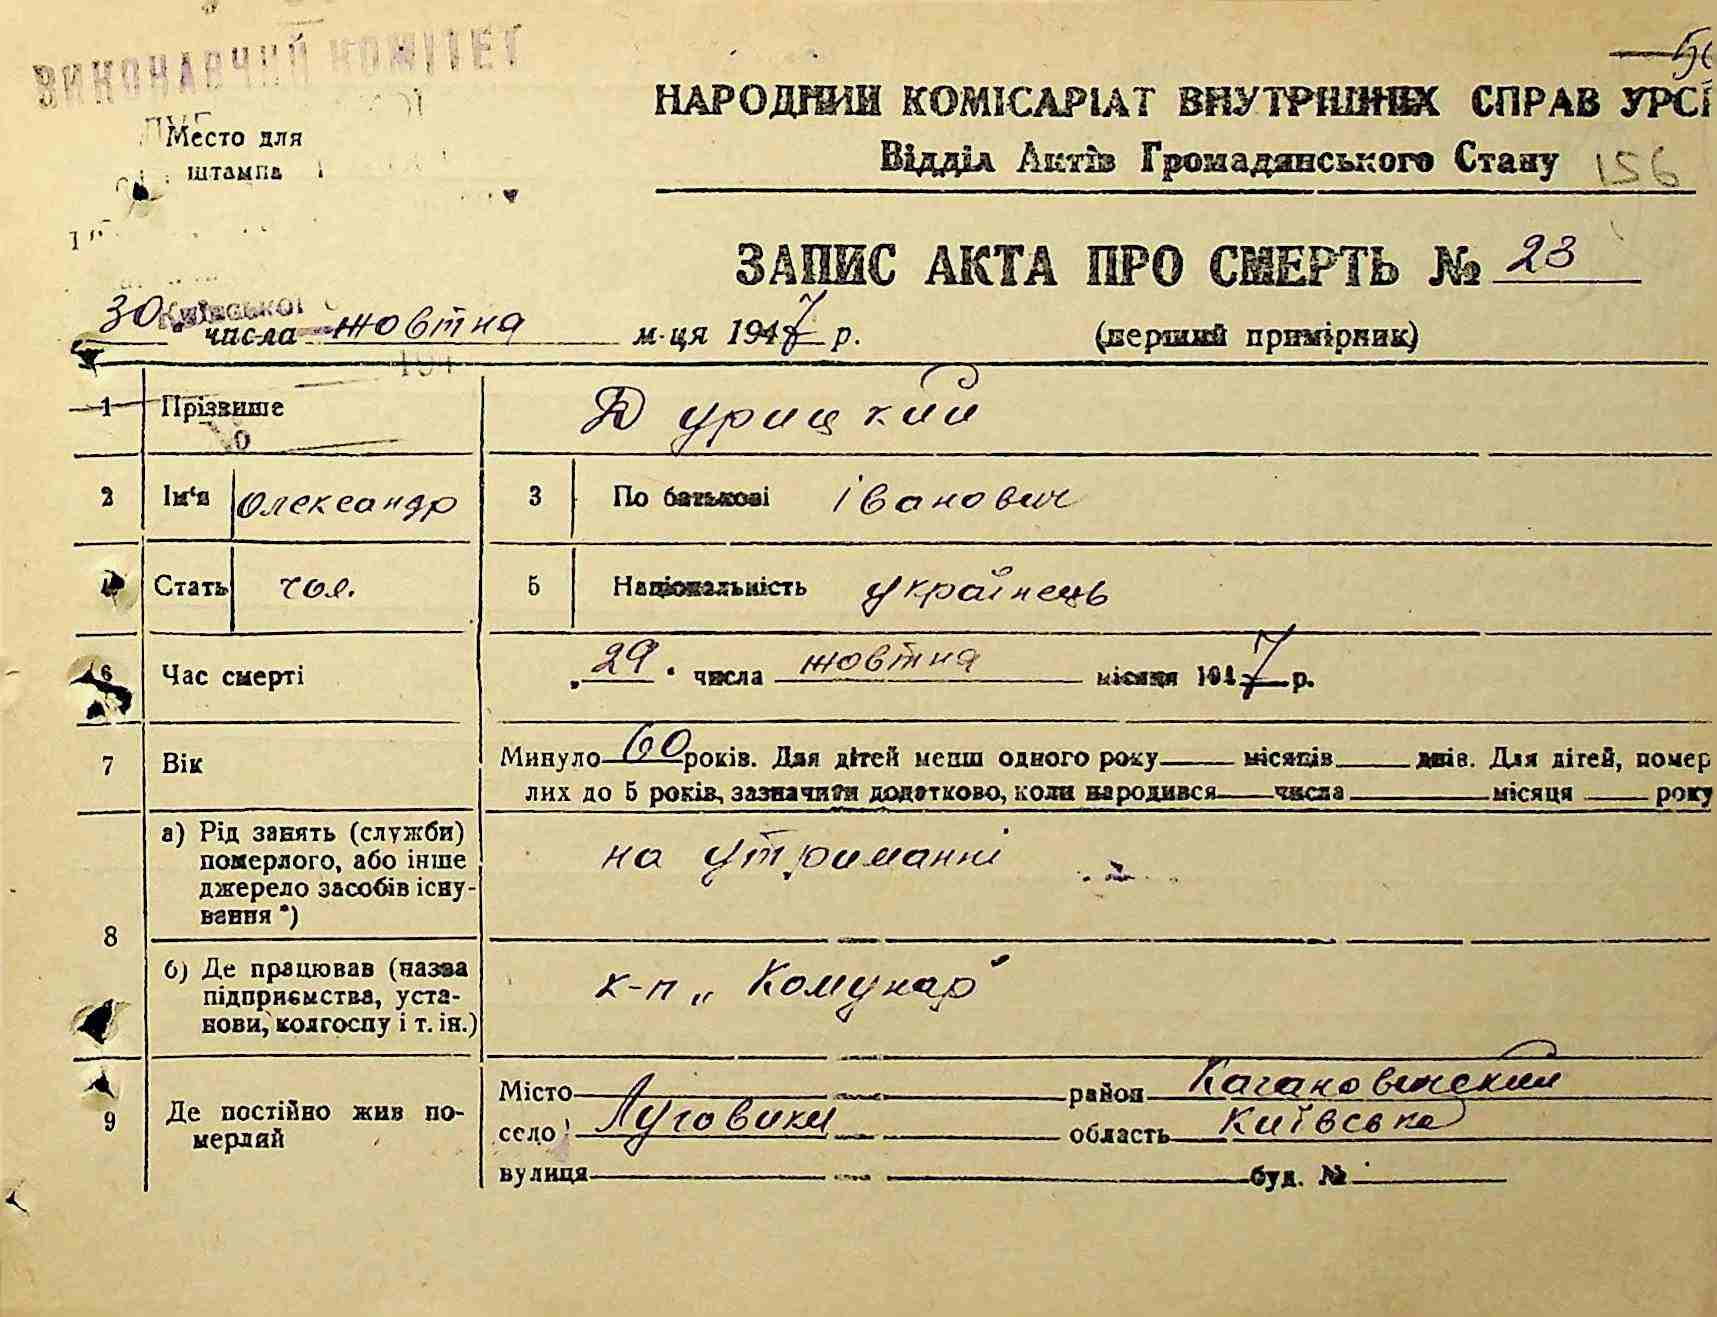 ВИКОНАВЧИЙ КОМІТЕТ
Место для
штампа
НАРОДНИЙ КОМІСАРІАТ ВНУТРІШНІХ СПРАВ УРСР
Відділ Актів Громадянського Стану 156
ЗАПИС АКТА ПРО СМЕРТЬ № 23
Київської
30 числа жовтня м-ця 1947 р. (перший примірник)
194
1 Прізвище Дурицкий
2 Ім'я Олександр 3 По батькові Іванович
4 Стать чол. 5 Національність українець
6 Час смерті „29" числа жовтня місяця 1947 р.
7 Вік Минуло 60 років. Для дітей менш одного року місяців днів. Для дітей, помер
лих до 5 років, зазначити додатково, коли народився числа місяця року
8 а) Рід занять (служби)
померлого, або інше
джерело засобів існу-
вання *)
на утриманні
б) Де працював (назва
підприємства, уста-
нови, колгоспу і т. ін.)
к-п „Комунар"
9 Де постійно жив по-
мерлий
Місто район Кагановический
село Луговики область Київська
вулиця буд. №